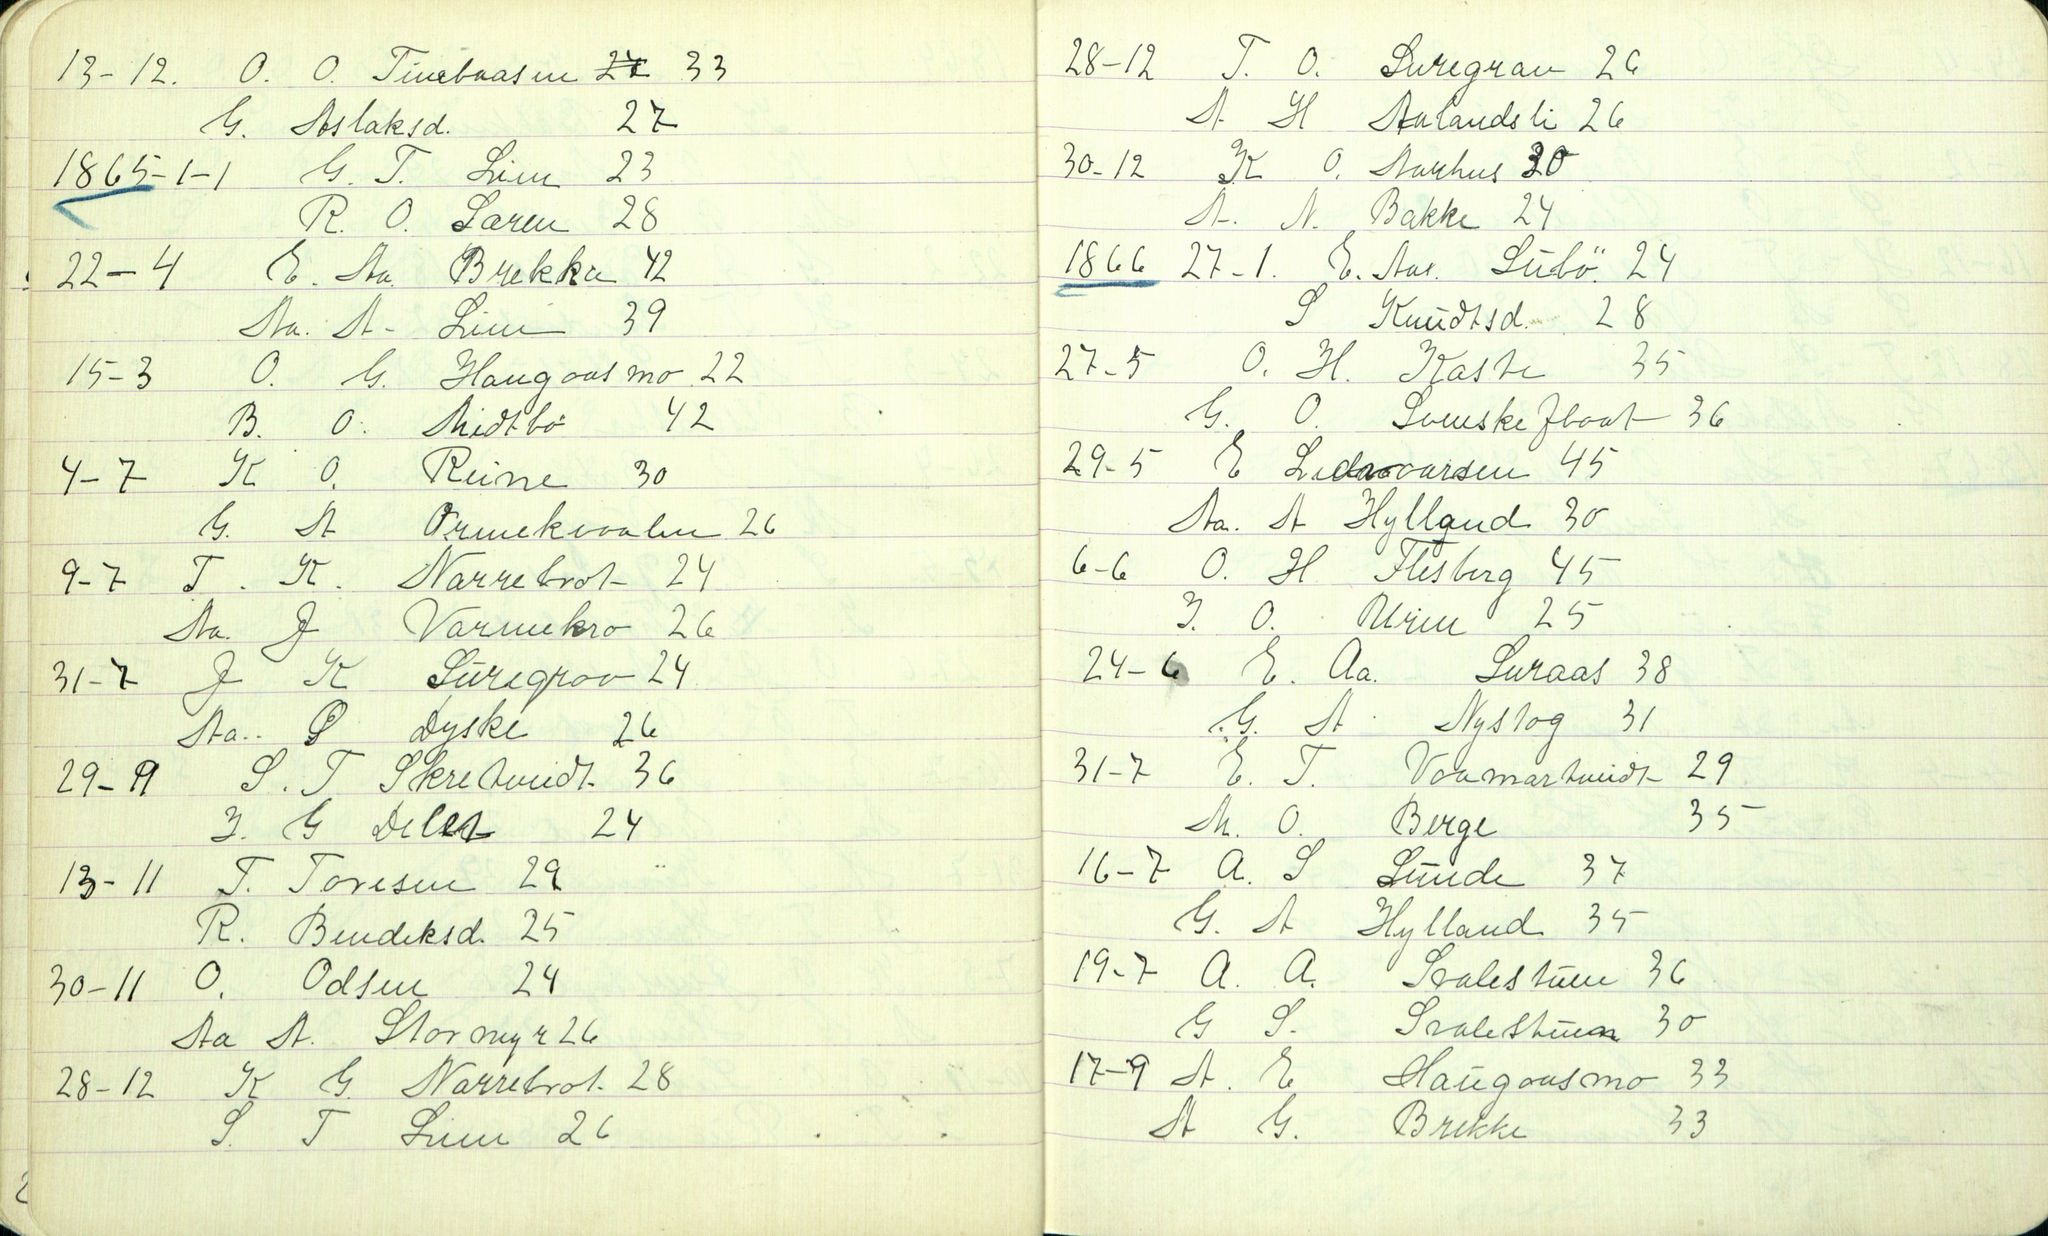 13-12. O. O. 33
G. Aslaksd. 27
1865-1-1 G. T. Lien 23
R. O. Laren 28
22-4 E. Aa. Brekka 42
Aa. A. Lien 39
15-3 O. G. Haugaasmo 22
B. O. Midtbö 42
4-7 K O. Reine 30
G. A Ormekvaalen 26
9-7 T. K. Narrebrot 24
Aa. J Varmekro 26
31-7 J K Suregrav 24
Aa. O Dyske 26
29-9 S. T Skretveidt 36
I. G 24
13-11 T. Toresen 29
R. Bendeksd. 25
30-11 O. Odsen 24
Aa A. Stormyr 26
28-12 K G. Narrebrot 28
S. T Lien 26
28-12 T. O. Suregrav 26
A H Aalandsli 26
30-12 K O. Aarhus 30
A. N. Bakke 24
1866 27-1. E. Aas. Lübö 24
S Knudtsd. 28
27-5 O. H. Kaste 35
G. O. Svenskefloat 36
29-5 E 45
Aa. A Hylland 30
6-6 O. H Flesberg 45
I. O. Uren 25
24-6 E. Aa. Luraas 38
G. A. Nystog 31
31-7 E. T. Vaamartveidt 29
M. O. Berge 35
16-7 A. S Sunde 37
G. A Hylland 35
19-7 A. A. Svalestuen 36
G S. Svalestuen 30
17-9 A. E Haugaasmo 33
A G. Brekke 33